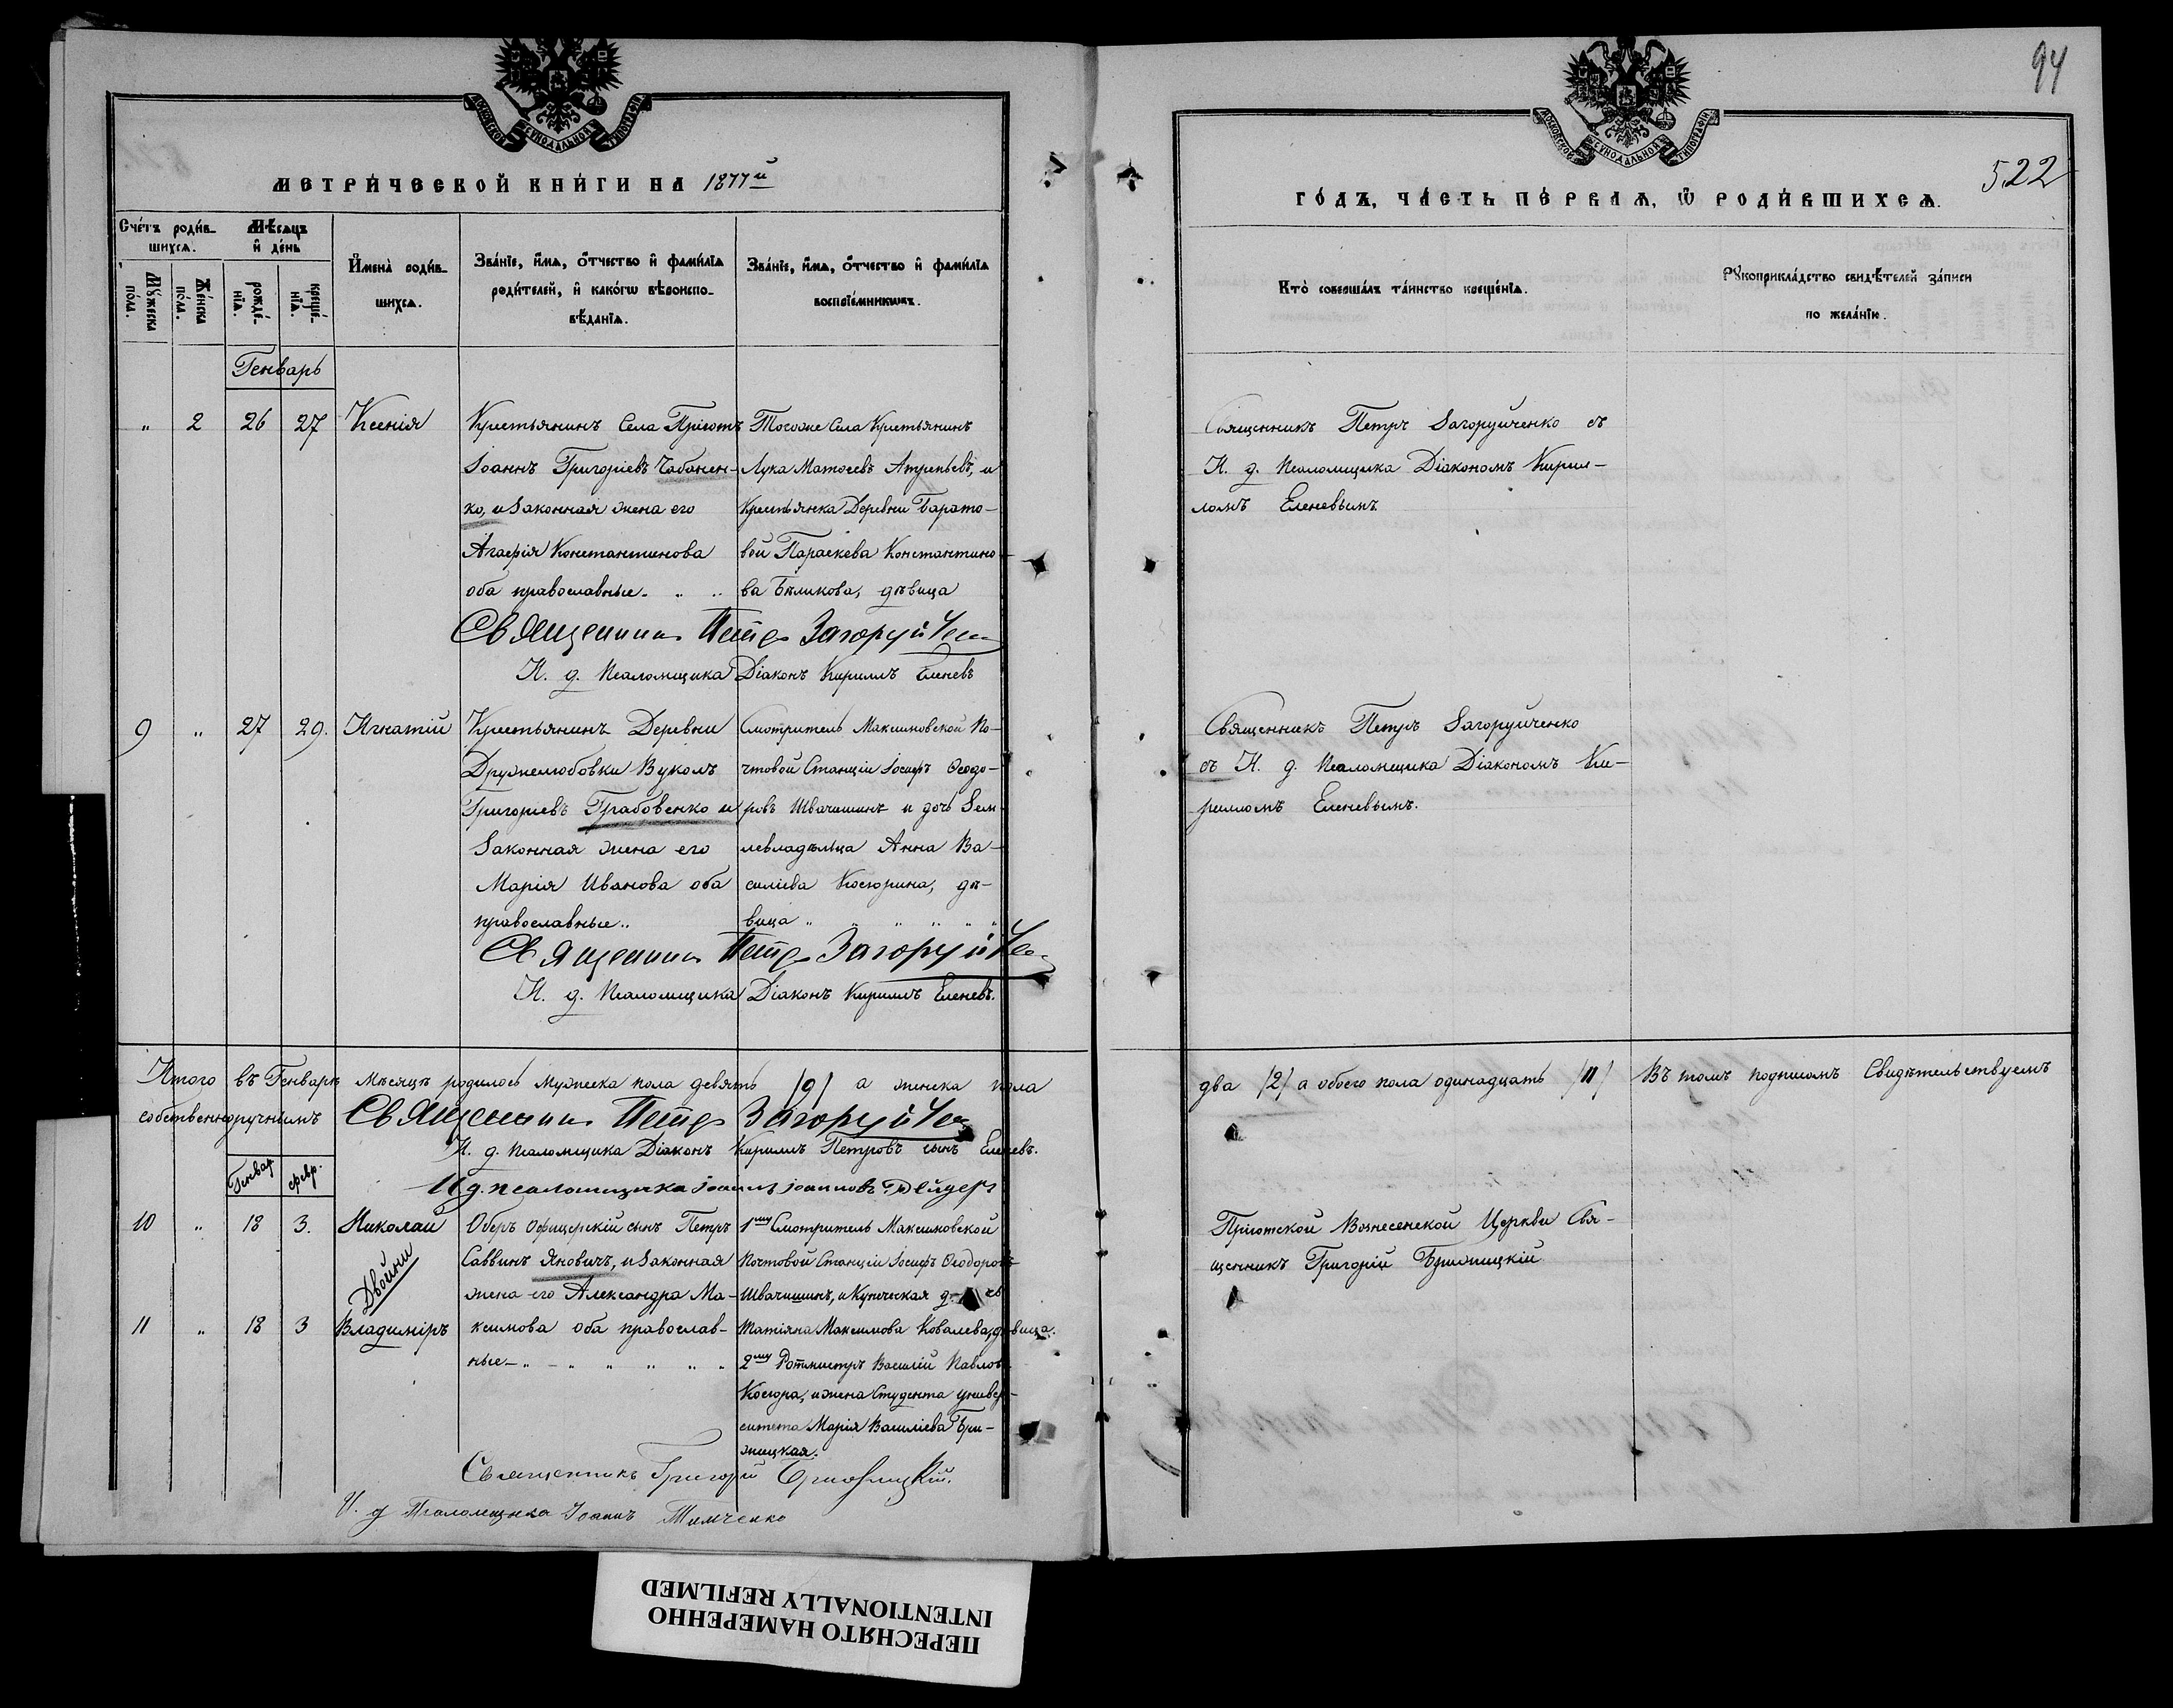 94
522
МОСКОВСКОЙ СѴНОДАЛЬНОЙ ТИПОГРАФІИ
МОСКОВСКОЙ СѴНОДАЛЬНОЙ ТИПОГРАФІИ
МЕТРИ́ЧЕСКОЙ КНИ́ГИ НА 1877й
ГО́ДЪ, ЧА́СТЬ ПЕ́РВАѦ, Ѡ҆ РОДИ́ВШИХСѦ.
Сче́тъ роди́в-
шихсѧ.
Мꙋ́жеска
по́ла.
Же́нска
по́ла.
Мѣ́сѧцъ
и҆ де́нь
рожде́-
нїѧ.
креще́-
нїѧ.
И҆мена̀ роди́в-
шихсѧ.
Зва́нїе, и҆́мѧ, ѻ҆́тчество и҆ фами́лїѧ
роди́телей, и҆ како́гѡ вѣроиспо-
вѣ́данїѧ.
Зва́нїе, и҆́мѧ, ѻ҆́тчество и҆ фами́лїѧ
воспрїе́мникѡвъ.
Кто̀ соверша́лъ та́инство креще́нїѧ.
Рꙋкоприкла́дство свидѣ́телей за́писи
по жела́нїю.
Генварь
„ 2 26 27 Ксенія
Крестьянинъ Села Пріютъ
Іоаннъ Григоріевъ Чабанен-
ко, и Законная жена его
Агафія Константинова
оба православные. „ „
Тогоже Села Крестьянинъ
Лука Матѳеевъ и
Крестьянка Деревни Барато-
вой Параскева Константино-
ва Бѣликова, дѣвица
Священникъ Петръ Загоруйченко съ
И. д. Псаломщика Діакономъ Кирил-
ломъ Еленевымъ
Священникъ Петръ Загоруйчен
И. д. Псаломщика Діаконъ Кириллъ Еленевъ
9 „ 27 29. Игнатій
Крестьянинъ Деревни
Дружелюбовки Вуколъ
Григориевъ Грабовенко и
Законная жена его
Марія Иванова оба
православные „
Смотритель Максимовской По-
чтовой Станціи Іосифъ Ѳеодо-
ровъ Швачишинъ и дочь Зем-
левладѣльца Анна Ва-
силіева Косюрина, дѣ-
вица „ „ „ „ „ „
Священникъ Петръ Загоруйченко
съ И. д. Псаломщика Діакономъ Ки-
рилломъ Еленевымъ.
Священникъ Петръ Загоруйчен
И. д. Псаломщика Діаконъ Кириллъ Еленевъ.
Итого въ Генварѣ Мѣсяцѣ родилось мужеска пола девять /9/ а женска пола
два /2/ а обоего пола одинадцать /11/ Въ томъ подписомъ Свидѣтельствуемъ
собственноручнымъ Священникъ Петръ Загоруйчен
И. д. Псаломщика Діаконъ Кириллъ Петровъ сынъ Еленевъ.
И д. псаломщика Іоаннъ Іоанновъ
Генвар февр.
10 „ 18 3. Николай
Двойни
11 „ 18 3 Владиміръ
Оберъ Офицерскій сынъ Петръ
Саввинъ Яновичъ, и Законная
жена его Александра Ма-
ксимова оба православ-
ные „ „ „ „ „ „
1му Смотритель Максимовской
Почтовой Станціи Іосифъ Ѳеодоровъ
Швачишинъ, и Купеческая
Татіяна Максимова Ковалева, дѣвица.
2му Ротмистръ Василій Павлов
Косюра, и жена Студента универ-
ситета Марія Василіева Бри-
жицкая.
Пріютской Вознесенской Церкви Свя-
щенникъ Григорій Брижицкій
Священникъ Григорій Брижицкій.
И. д Псаломщика Іоаннъ Тимченко
ПЕРЕСНЯТО НАМЕРЕННО
INTENTIONALLY REFILMED